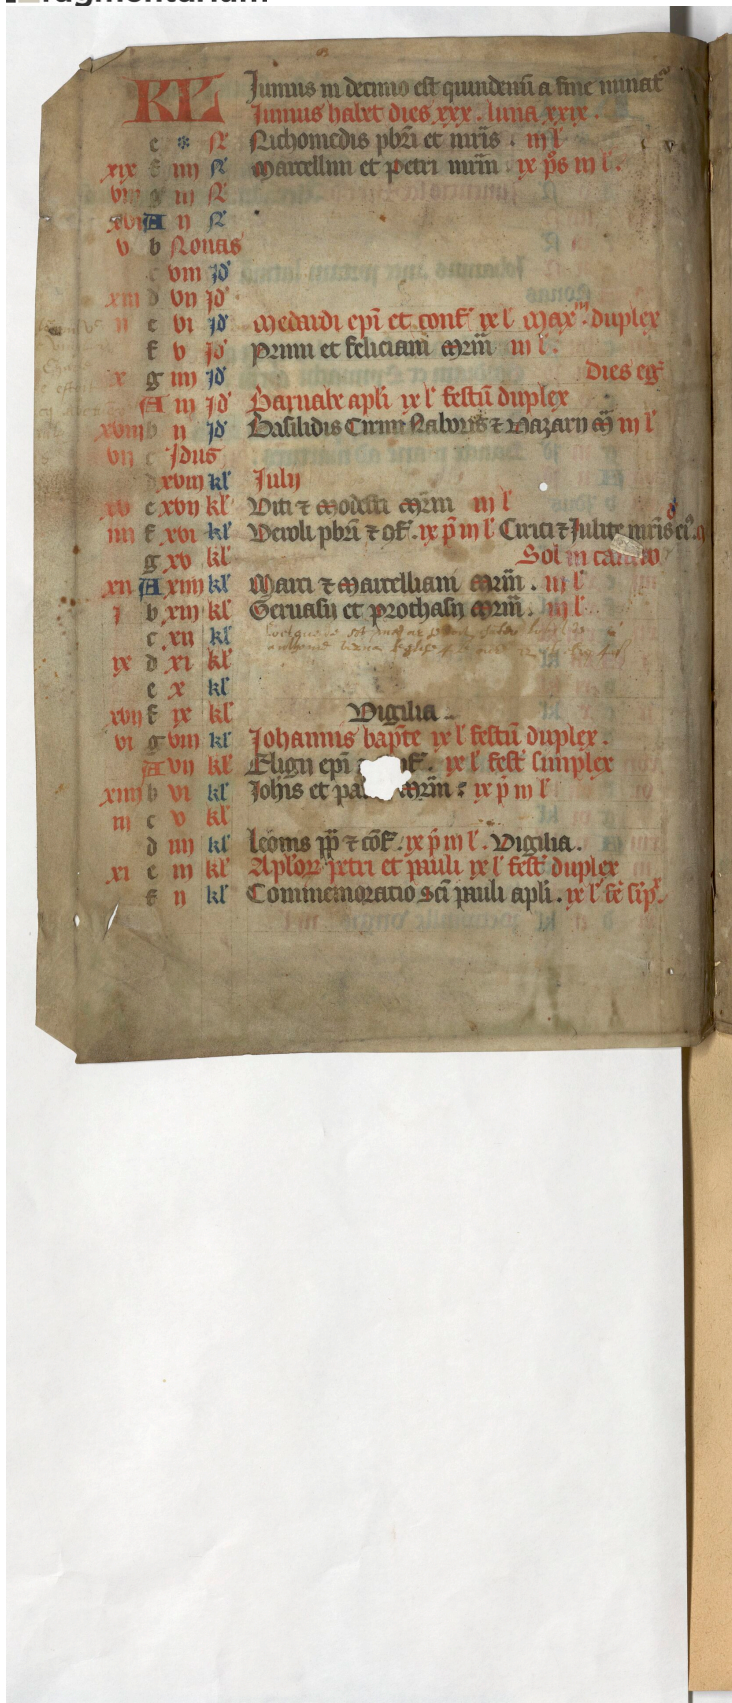 KL Junius in decimo est quindenū a fine minat᷑
Junius habet dies xxx . luna xxix .
e * N Nichomedis pbrī et mr̄is . iii l
xix f iiii N Marcellini et petri mr̄m ix ps iii l .
viii g iii N
xvi A ii N
v b Nonas
c viii Jd
xiii d vii Jd
ii e vi Jd Medardi epī et conf ix l Maxm duplex
f v Jd Primi et feliciani mr̄m iii l .
x g iiii Jd Dies eg
A iii Jd Barnabe apli ix l festū duplex
xviii b ii Jd Basilidis Cirini Naboris ⁊ Nazarii m̄ iii l
vii c Jdus
d xviii kl Julii
xv e xvii kl Viti ⁊ Modesti mr̄m iii l
iiii f xvi kl Veroli pbrī ⁊ ɔf . ix p̄ iii l Cirici ⁊ Julite mr̄is
g xv kl Sol in cancro
xii A xiiii kl Marci ⁊ Marcelliani mr̄m . iii l
i b xiii kl Geruasii et prothasii mr̄m . iii l
c xii kl
ix d xi kl
e x kl
xvii f ix kl Vigilia .
vi g viii kl Johannis bapt̄e ix l festū duplex .
A vii kl Eligii epī ɔf . ix l fest simplex
xiiii b vi kl Joh̄is et pa mr̄m : ix p̄ iii l
iii c v kl
d iiii kl Leonis pp̄ ⁊ cōf . ix p̄ iii l . Vigilia .
xi e iii kl Aplorꝝ petri et pauli ix l fest duplex
f ii kl Commemoratio sc̄i pauli apli . ix l fe sip̄